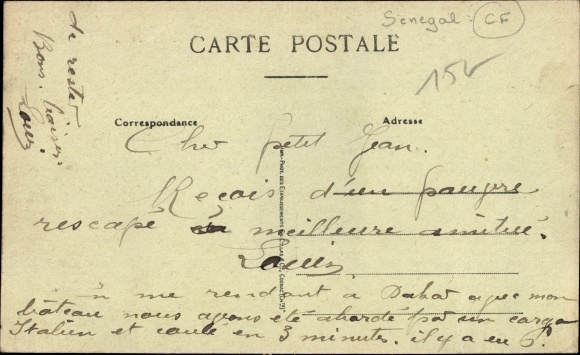 Senegal. CF
CARTE POSTALE
15v
Correspondance
Adresse
Cher Petit Jean.
Reçois d'un pauvre
rescapé sa meilleure amitié.
Louis
En me rendant à Dakar avec mon
bateau nous avons été abordé par un cargo
Italien et coulé en 3 minutes. il y a eu 6
de resté
Bons baisers
Louis